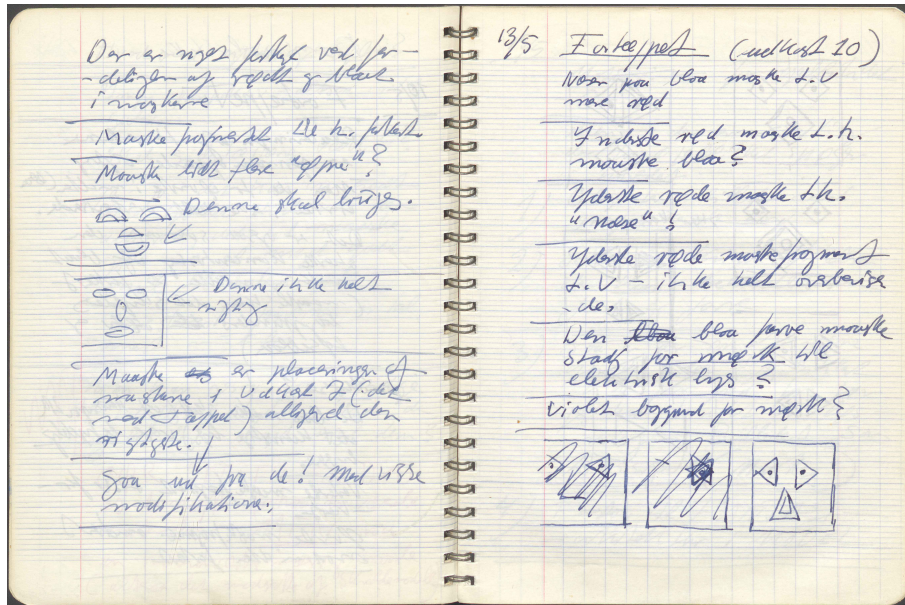 Der er noget forkert ved for-
-delingen af rødt og blåt
i maskerne
Maske fragmentet til h. forkert.
Måske lidt flere "øjne"?
Denne skal bruges.
Denne ikke helt
rigtig
Måske er placeringen af
maskerne i Udkast 7 (det
med tappet) alligevel den
rigtigste.
Gaa ud fra de! med visse
modifikationer.
13/5 Fortæppet (udkast 10)
Næsen paa blaa maske t.v
mere rød
Inderste rød maske t.h.
måske blaa?
Yderste røde maske t.h.
"næse"!
Yderste røde maskefragment
t.v – ikke helt overbevisen
-de.
Den blaa farve måske
stadig for mørk til
elektrisk lys?
Violet baggrund for mørk?